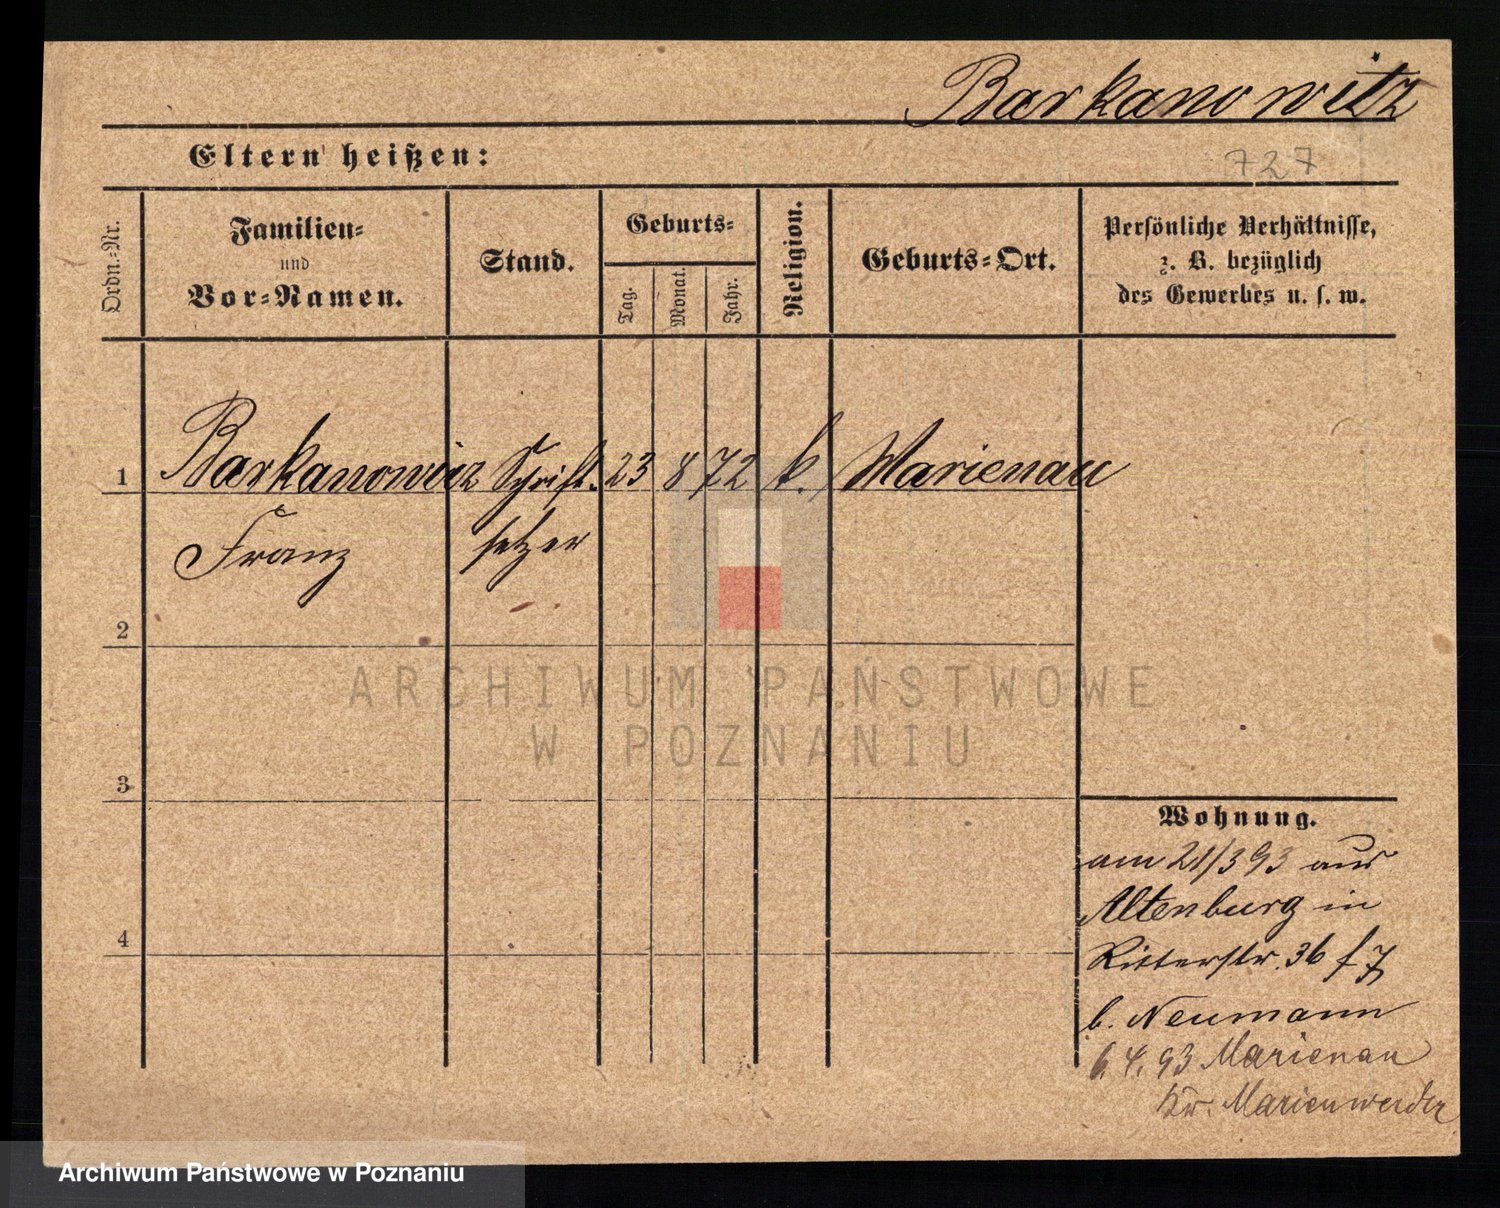 Barkanowitz
Eltern heißen:
727
Ordn.-Nr.
Familien-
und
Vor-Namen.
Stand.
Geburts-
Tag.
Monat.
Jahr.
Religion.
Geburts-Ort.
Persönliche Verhältnisse,
z. B. bezüglich
des Gewerbes u. s. w.
1 Barkanowitz Schrift- 23 8 72 k. Marienau
Franz setzer
2
ARCHIWUM PAŃSTWOWE
W POZNANIU
3
Wohnung.
am 21/3 93 aus
Altenburg in
4
Ritterstr. 36
b. Neumann
6. 4. 93 Marienau
Kr. Marienwerder
Archiwum Państwowe w Poznaniu